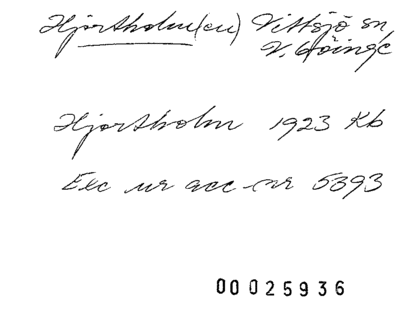 Hjortholm(en) Vittsjö sn,
V. Göinge
Hjortholm 1923 Kb
Exc ur acc-nr 5393
00025936